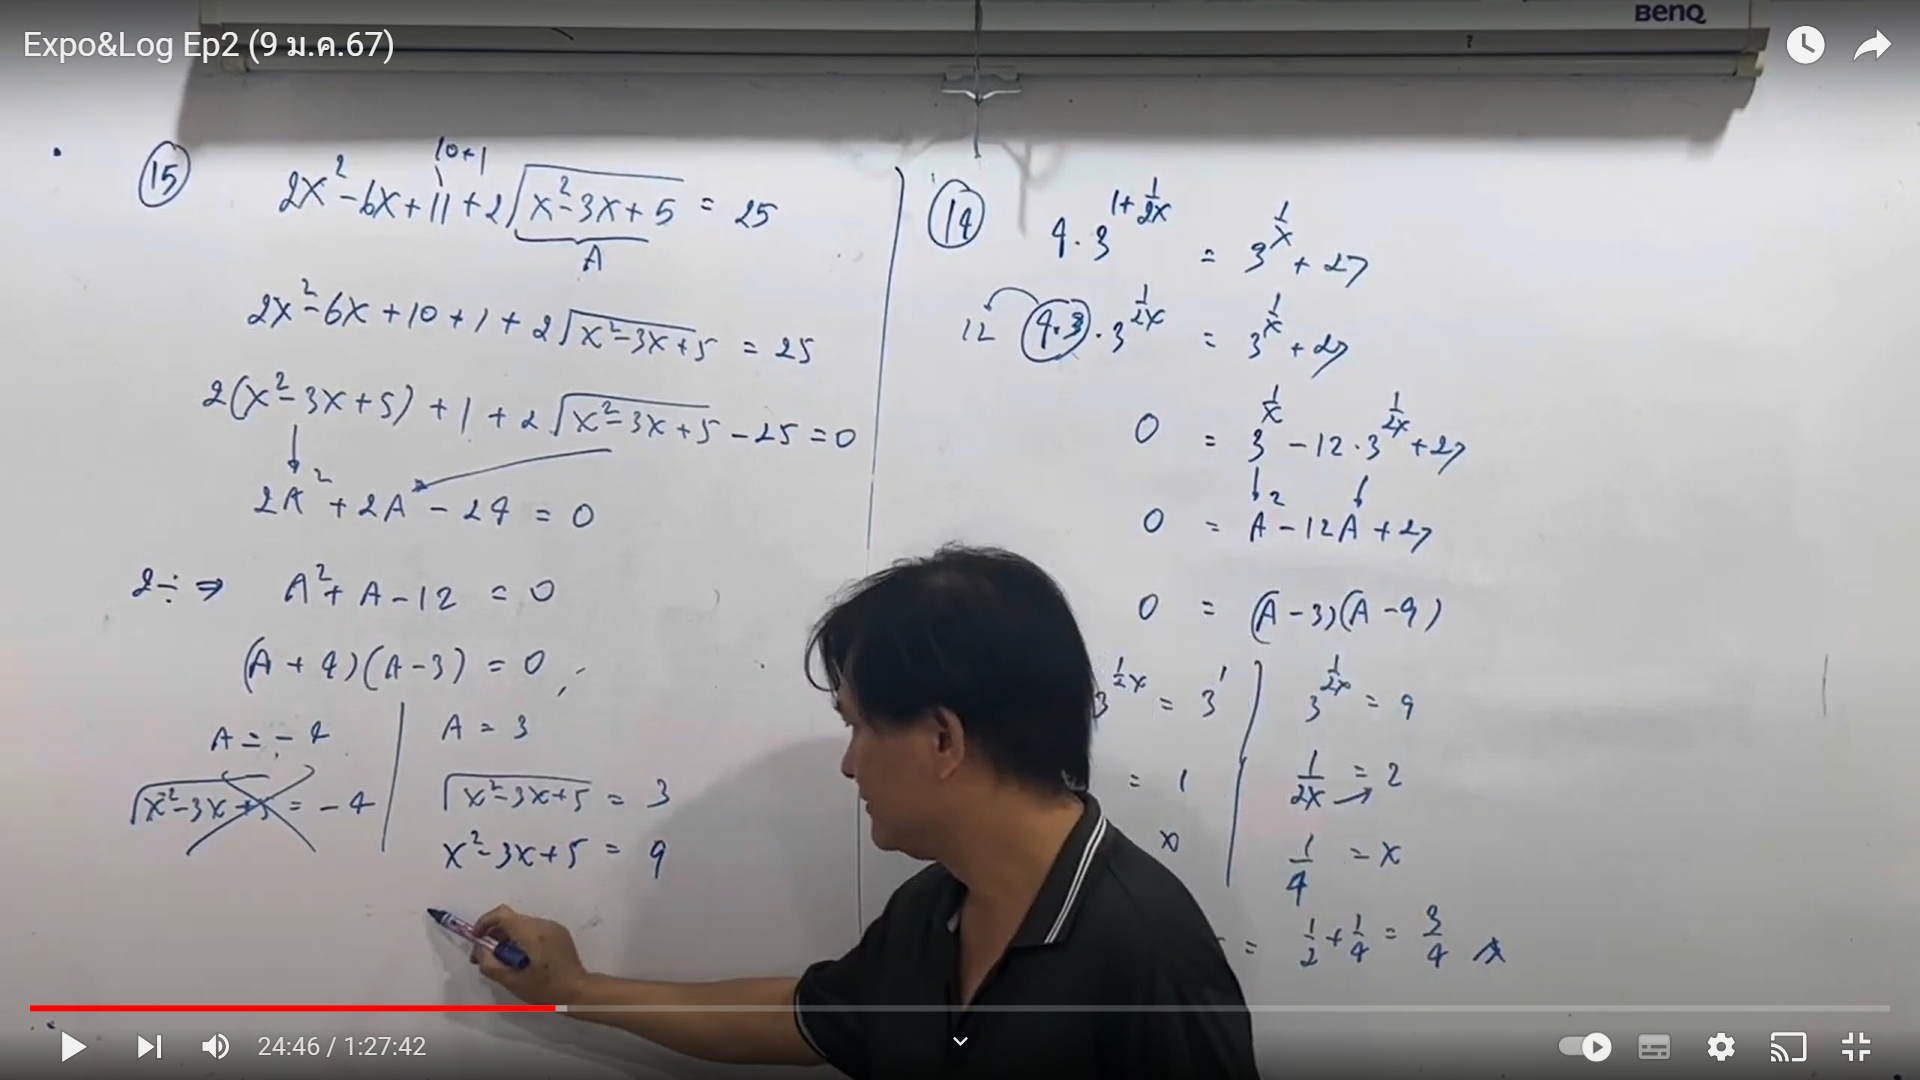 BenQ
Expo&Log Ep2 (9 ม.ค.67)
15
10+1
2x² - 6x + 11 + 2√(x² - 3x + 5) = 25
A
2x² - 6x + 10 + 1 + 2√(x² - 3x + 5) = 25
2(x² - 3x + 5) + 1 + 2√(x² - 3x + 5) - 25 = 0
2A² + 2A - 24 = 0
2÷ ⇒ A² + A - 12 = 0
(A + 4)(A - 3) = 0
A = -4
√(x² - 3x + 5) = -4
A = 3
√(x² - 3x + 5) = 3
x² - 3x + 5 = 9
14
4·3^(1+1/2x) = 3^(1/x) + 27
12 (4·3)·3^(1/2x) = 3^(1/x) + 27
0 = 3^(1/x) - 12·3^(1/2x) + 27
0 = A² - 12A + 27
0 = (A - 3)(A - 9)
3^(1/2x) = 3¹
= 1
x
3^(1/2x) = 9
1/2x = 2
1/4 = x
= 1/2 + 1/4 = 3/4
24:46 / 1:27:42